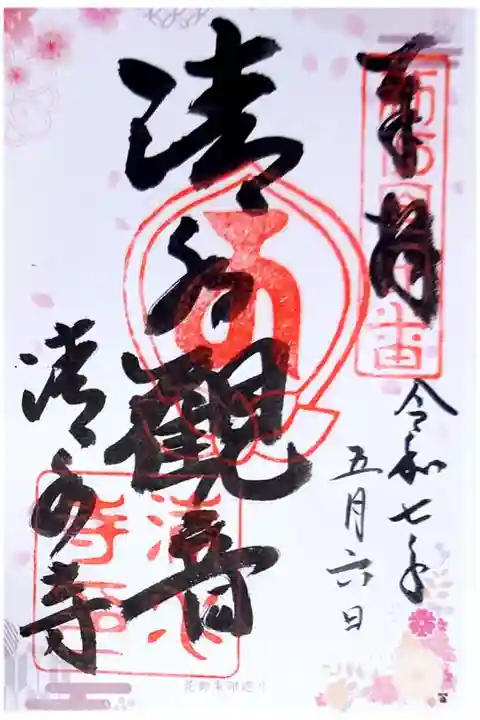 奉拝
令和七年
五月六日
清水観音
清水寺
花御朱印巡り